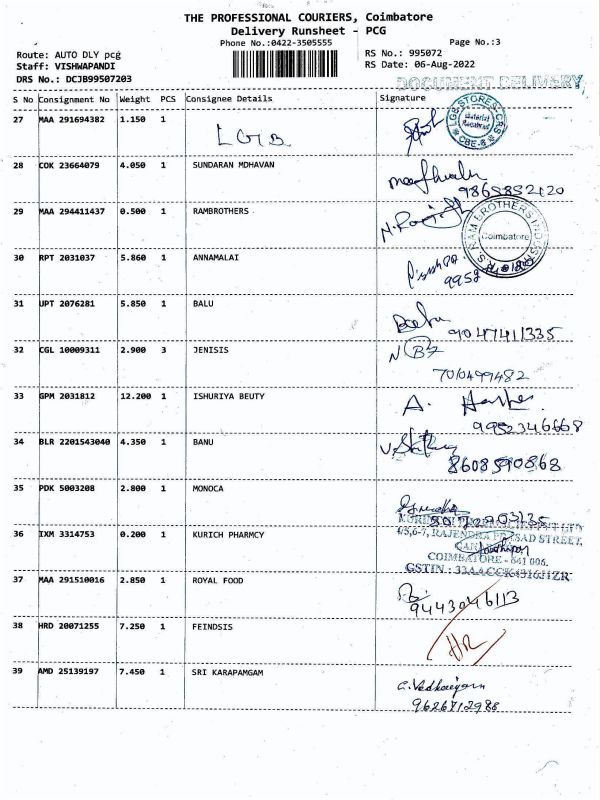 THE PROFESSIONAL COURIERS, Coimbatore
Delivery Runsheet - PCG
Phone No.:0422-3505555
Page No.:3
Route: AUTO DLY pcg
RS No.: 995072
Staff: VISHWAPANDI
RS Date: 06-Aug-2022
DRS No.: DCJB99507203
DOCUMENT DELIVERY
S No Consignment No Weight PCS Consignee Details Signature
27 MAA 291694382 1.150 1 LGB
LGB STORES CBS
Material Received
CBE-6
28 COK 23664079 4.050 1 SUNDARAN MDHAVAN
9865852120
29 MAA 294411437 0.500 1 RAMBROTHERS
RAM BROTHERS
Coimbatore
30 RPT 2031037 5.860 1 ANNAMALAI
9952
31 UPT 2076281 5.850 1 BALU
Balu
9047411335
32 CGL 10009311 2.900 3 JENISIS
7010499482
33 GPM 2031812 12.200 1 ISHURIYA BEUTY
9952346668
34 BLR 2201543040 4.350 1 BANU
8608590868
35 PDK 5003208 2.800 1 MONOCA
36 IXM 3314753 0.200 1 KURICH PHARMCY
4/5,6-7, RAJENDRA PRASAD STREET,
COIMBATORE - 641 006.
37 MAA 291510016 2.850 1 ROYAL FOOD
9443046113
38 HRD 20071255 7.250 1 FEINDSIS
HR
39 AMD 25139197 7.450 1 SRI KARAPAMGAM
9626712988